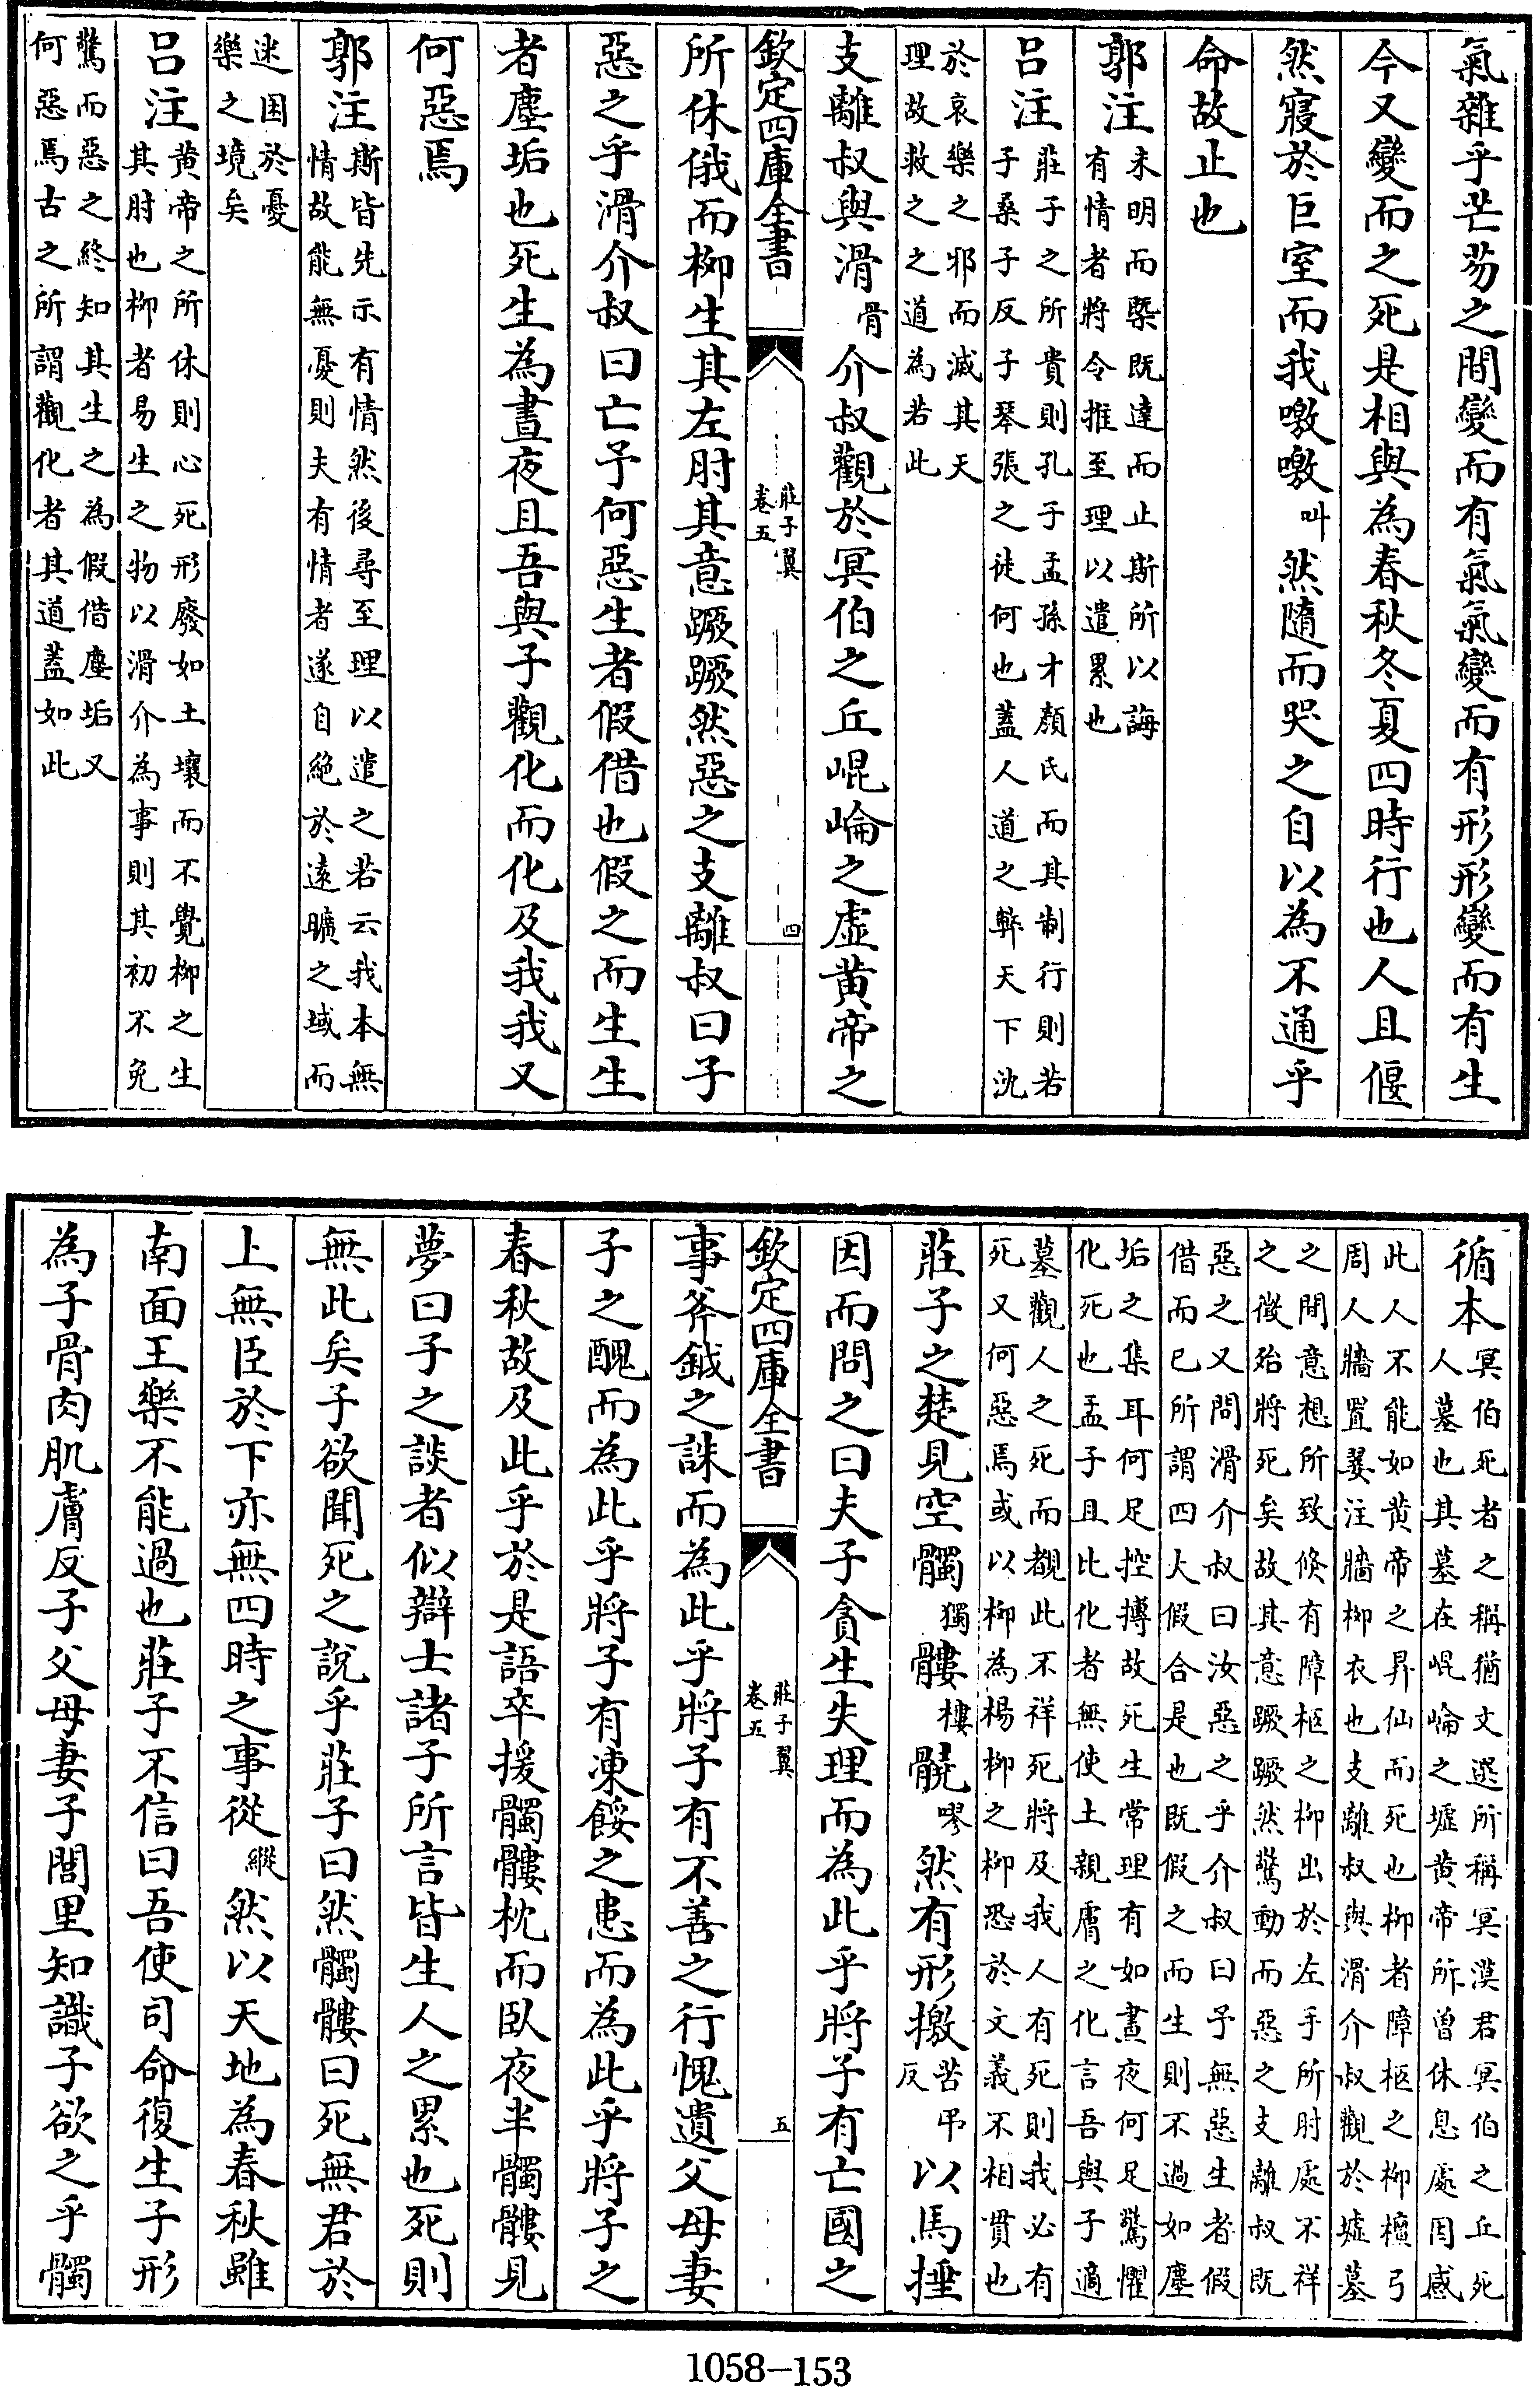 氣雜乎芒芴之間變而有氣氣變而有形形變而有生
今又變而之死是相與為春秋冬夏四時行也人且偃
然寢於巨室而我噭噭叫然隨而哭之自以為不通乎
命故止也
郭注未明而槩既達而止斯所以誨
有情者將令推至理以遣累也
呂注莊子之所貴則孔子孟孫才顏氏而其制行則若
子桑子反子琴張之徒何也蓋人道之弊天下沈
於哀樂之邪而滅其天
理故救之之道為若此
支離叔與滑骨介叔觀於冥伯之丘崐崙之虛黃帝之
欽定四庫全書
莊子翼
卷五
四
所休俄而柳生其左肘其意蹶蹶然惡之支離叔曰子
惡之乎滑介叔曰亡予何惡生者假借也假之而生生
者塵垢也死生為晝夜且吾與子觀化而化及我我又
何惡焉
郭注斯皆先示有情然後尋至理以遣之若云我本無
情故能無憂則夫有情者遂自絕於遠曠之域而
迷困於憂
樂之境矣
呂注黃帝之所休則心死形廢如土壤而不覺柳之生
其肘也柳者易生之物以滑介為事則其初不免
驚而惡之終知其生之為假借塵垢又
何惡焉古之所謂觀化者其道蓋如此
循本冥伯死者之稱猶文選所稱冥漠君冥伯之丘死
人墓也其墓在崐崙之墟黃帝所曾休息處因感
此人不能如黃帝之昇仙而死也柳者障柩之柳檀弓
周人牆置翣注牆柳衣也支離叔與滑介叔觀於墟墓
之間意想所致倏有障柩之柳出於左手所肘處不祥
之徵殆將死矣故其意蹶蹶然驚動而惡之支離叔既
惡之又問滑介叔曰汝惡之乎介叔曰予無惡生者假
借而已所謂四大假合是也既假之而生則不過如塵
垢之集耳何足控摶故死生常理有如晝夜何足驚懼
化死也孟子且比化者無使土親膚之化言吾與子適
墓觀人之死而覩此不祥死將及我人有死則我必有
死又何惡焉或以柳為楊柳之柳恐於文義不相貫也
莊子之楚見空髑獨髏樓髐嘐然有形撽苦弔
反以馬捶
因而問之曰夫子貪生失理而為此乎將子有亡國之
欽定四庫全書
莊子翼
卷五
五
事斧鉞之誅而為此乎將子有不善之行愧遺父母妻
子之醜而為此乎將子有凍餒之患而為此乎將子之
春秋故及此乎於是語卒援髑髏枕而臥夜半髑髏見
夢曰子之談者似辯士諸子所言皆生人之累也死則
無此矣子欲聞死之說乎莊子曰然髑髏曰死無君於
上無臣於下亦無四時之事從縱然以天地為春秋雖
南面王樂不能過也莊子不信曰吾使司命復生子形
為子骨肉肌膚反子父母妻子閭里知識子欲之乎髑
1058-153